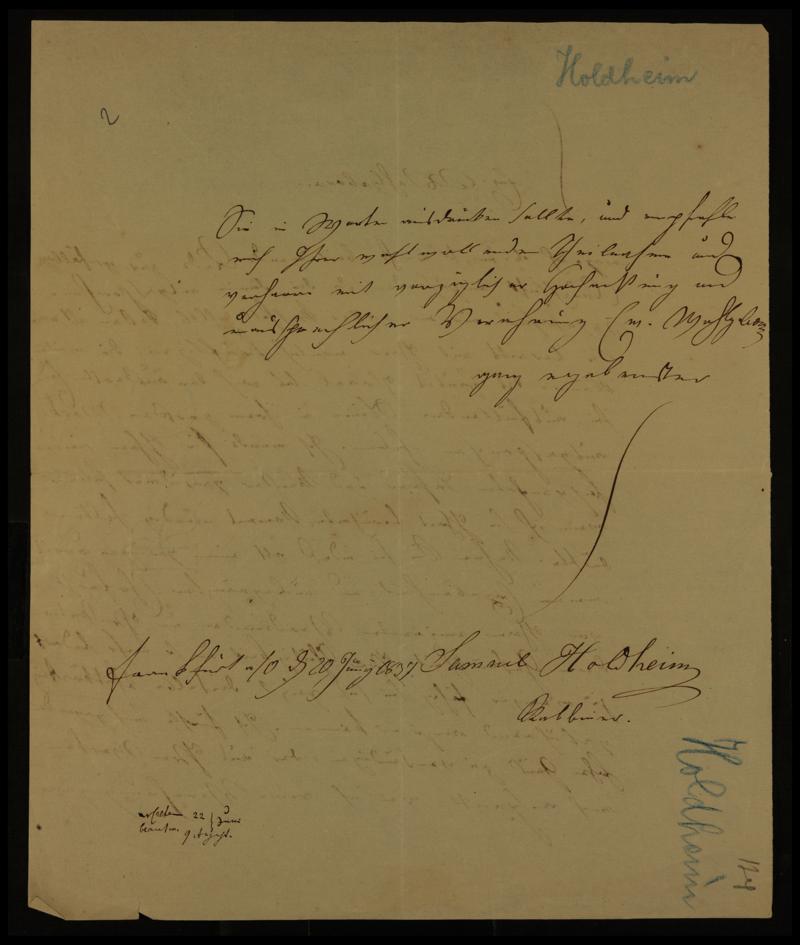 Holdheim
2
Sie in Worten ausdrücken sollte, und empfehle
mich Ihrer wohlwollenden Theilnahme und
verharre mit vorzüglicher Hochachtung und
unaussprechlicher Verehrung Ew. Wohlgeboren
ganz ergebenster
Frankfurt a/O d 20 Juny 1837 Samuel Holdheim
Rabbiner.
erhalten 22 Juni
beantw. 9
Holdheim
124